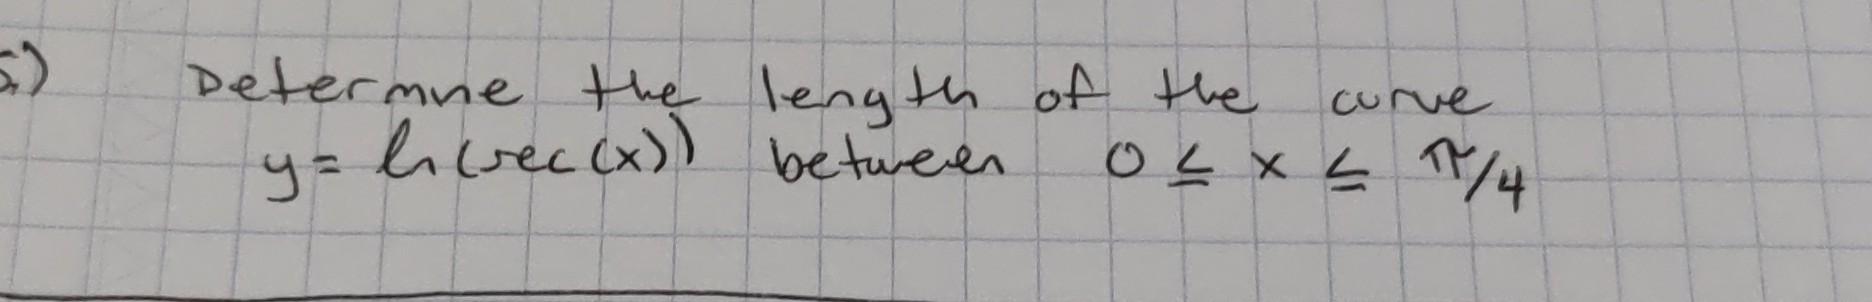 5) Determine the length of the curve
y = ln(sec(x)) between 0 ≤ x ≤ π/4